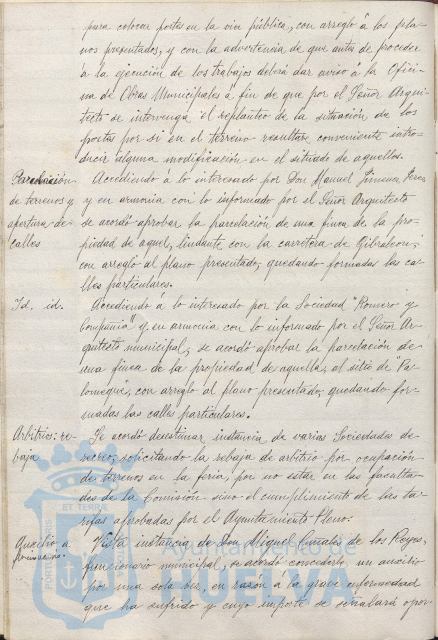 para colocar postes en la via pública, con arreglo á los pla-
nos presentados, y con la advertencia de que antes de proceder
á la ejecución de los trabajos deberá dar aviso á la Ofici-
na de Obras Municipales á fin de que por el Señor Arqui-
tecto se intervenga el replanteo de la situación de los
postes por si en el terreno resultare conveniente intro-
ducir alguna modificación en el situado de aquellos.
Parcelación
de terrenos y
apertura de
calles
Accediendo á lo interesado por Don Manuel Jimenez
y en armonia con lo informado por el Señor Arquitecto
se acordó aprobar la parcelación de una finca de la pro-
piedad de aquel, lindante con la carretera de Gibraleon,
con arreglo al plano presentado, quedando formadas las ca-
lles particulares.
Id. id.
Accediendo á lo interesado por la Sociedad "Romero y
Compañia" y en armonia con lo informado por el Señor Ar-
quitecto municipal, se acordó aprobar la parcelación de
una finca de la propiedad de aquella, al sitio de "Pa-
lomeque", con arreglo al plano presentado, quedando for-
madas las calles particulares.
Arbitrios: re-
baja
Se acordó desestimar instancia de varias Sociedades de
recreo, solicitando la rebaja de arbitrio por ocupación
de terrenos en la feria, por no estar en las faculta-
des de la Comisión sino el cumplimiento de las ta-
rifas aprobadas por el Ayuntamiento Pleno.
Auxilio á
Vista instancia de Don Miguel de los Reyes,
funcionario municipal, se acordó concederle un auxilio
por una sola vez, en razón á la grave enfermedad
que ha sufrido y cuyo importe se señalará opor-
PORTUS MARIS
ET TERRAE
Ayuntamiento de
HUELVA